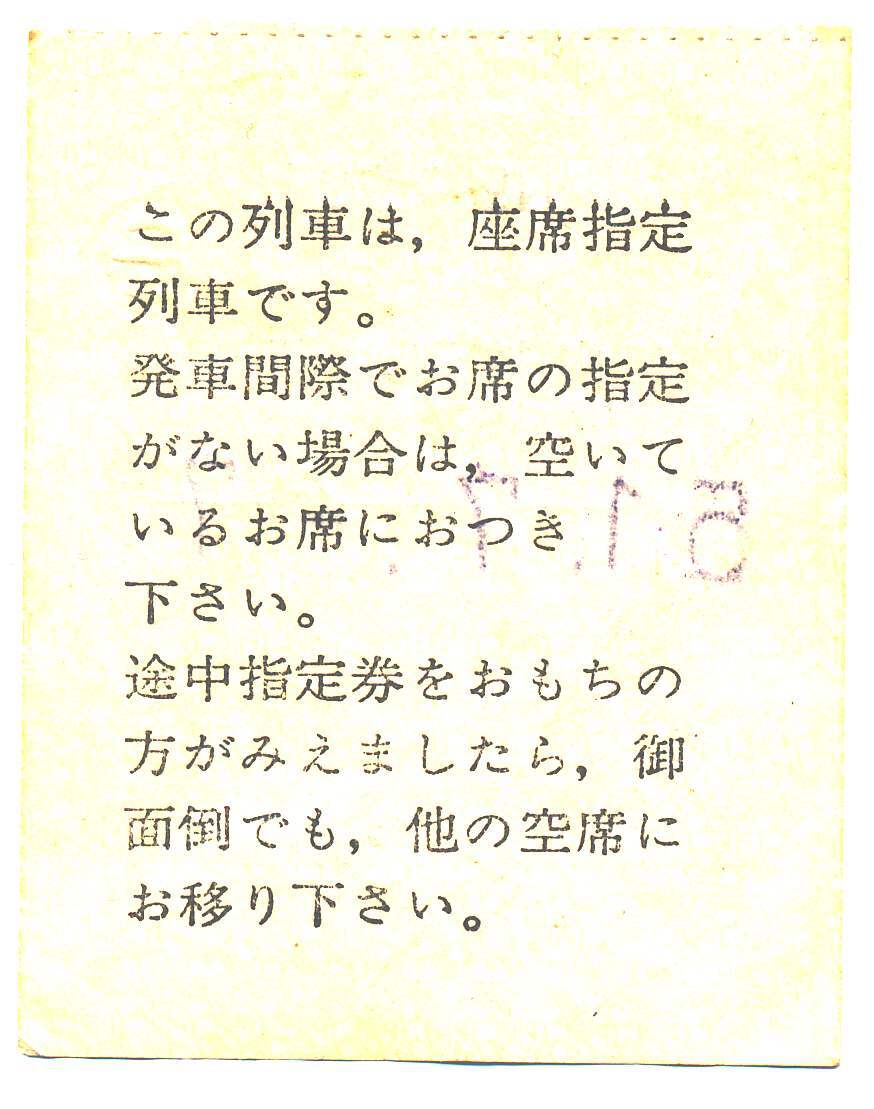 この列車は，座席指定
列車です。
発車間際でお席の指定
がない場合は，空いて
いるお席におつき
下さい。
途中指定券をおもちの
方がみえましたら，御
面倒でも，他の空席に
お移り下さい。